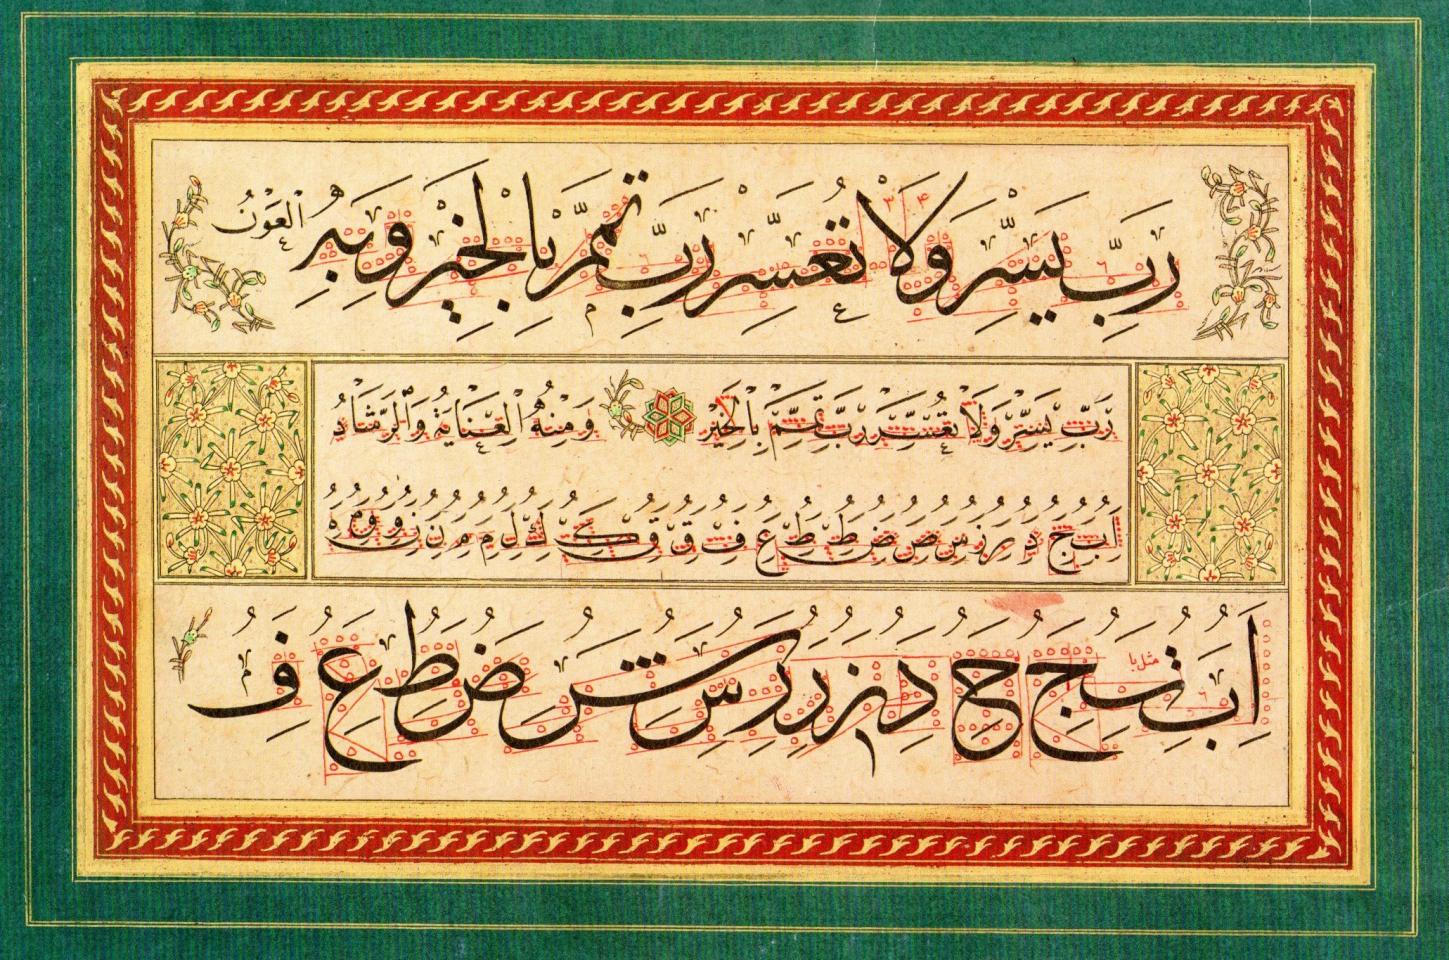 رَبِّ يَسِّرْ وَلَا تُعَسِّرْ رَبِّ تَمِّمْ بِالْخَيْرِ وَبِهِ الْعَوْنُ
رَبِّ يَسِّرْ وَلَا تُعَسِّرْ رَبِّ تَمِّمْ بِالْخَيْرِ وَمِنْهُ الْعِنَايَةُ وَالرَّشَادُ
ا ب ج د ر ز س ص ض ط ظ ع ف ق ق ك ك ل م م ن ن و و ه
ا ب ت ج ح د ز ر ر س ش ض ط ع ف
مثل با